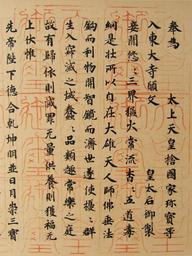 奉為 太上天皇捨國家珍寶等
入東大寺願文 皇太后御製
妾聞悠〻三界猛火常流杳〻五道毒
網是壯所以自在大雄天人師佛垂法
鉤而利物開智鏡而濟世遂使擾〻群
生入寂滅之域蠢〻品類趣常樂之庭
故有歸依則滅罪无量供養則獲福无
上伏惟
先帝陛下德合乾坤明並日月崇三寶